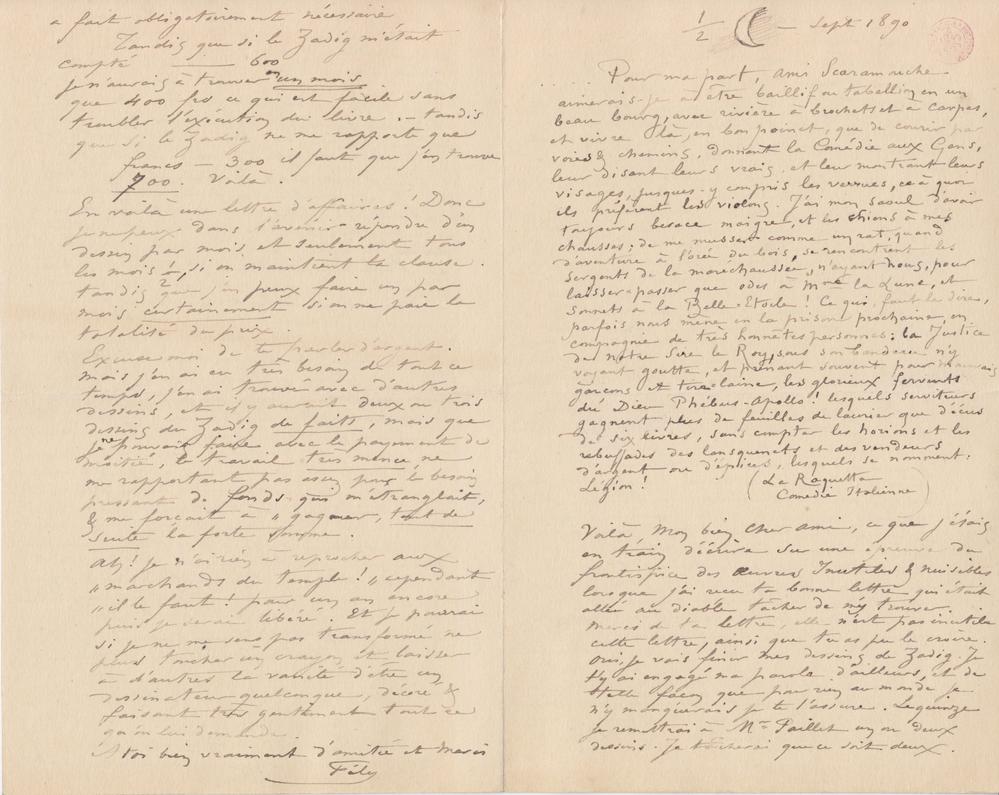 1/2 — Sept 1890
Pour ma part, ami Scaramouche
aimerais-je à être baillif ou tabellion en un
beau bourg, avec rivière à brochets et à carpes,
et vivre là, en bon point, que de courir par
voies & chemins, donnant la Comédie aux Gens,
leur disant leurs vrais, et leur montrant leurs
visages, jusques-y compris les verrues, ce à quoi
ils préfèrent les violons. J'ai mon saoul d'avoir
toujours besace maigre, et les chiens à mes
chausses; de me musser comme un rat, quand
d'aventure à l'orée du bois, se rencontrent les
Sergents de la maréchaussée, n'ayant nous, pour
laisser-passer que odes à Mme la Lune, et
Sonnets à la Belle-Etoile ! Ce qui, faut le dire,
parfois nous mène en la prison prochaine, en
compagnie de très honnêtes personnes; la Justice
de notre Sire le Roy, sous son bandeau n'y
voyant goutte, et prenant souvent pour mauvais
garçons et tire-laine, les glorieux fervents
du Dieu Phébus-Apollo ! lesquels serviteurs
gagnent plus de feuilles de laurier que d'écus
de six livres, sans compter les horions et les
rebuffades des lansquenets et des vendeurs
d'argent ou d'épices, lesquels se nomment :
Légion !
(La Raquetta
Comédie Italienne)
Voilà, Mon bien cher ami, ce que j'étais
en train d'écrire sur une épreuve du
frontispice des Œuvres Inutiles & Nuisibles
lorsque j'ai reçu ta bonne lettre qui était
allée au diable tâcher de m'y trouver.
Merci de ta lettre, elle n'est pas inutile
cette lettre, ainsi que tu as pu le croire.
Oui, je vais finir mes dessins de Zadig. Je
t'y ai engagé ma parole d'ailleurs, et de
telle façon que pour rien au monde je
n'y manquerais je te l'assure. Le quinze
je remettrai à Mr Paillet un ou deux
dessins. Je tâcherai que ce soit deux.
a fait obligatoirement nécessaire
Tandis que si le Zadig m'était
compté —— 600
je n'aurais à trouver en un mois
que 400 frs ce qui est facile sans
troubler l'exécution du livre. — tandis
que si le Zadig ne me rapporte que
francs — 300 il faut que j'en trouve
700. Voilà.
En voilà une lettre d'affaires ! Donc
je ne peux dans l'avenir répondre d'un
dessin par mois et seulement tous
les mois 1/2, si on maintient la clause.
tandis que j'en peux faire un par
mois certainement si on me paie la
totalité du prix.
Excuse moi de te parler d'argent.
Mais j'en ai eu très besoin de tout ce
temps, j'en ai trouvé avec d'autres
dessins, et il y aurait deux ou trois
dessins du Zadig de faits, mais que
je ne pouvais faire avec le payement de
moitié, le travail très mince ne
me rapportant pas assez pour le besoin
pressant de fonds qui m'étranglait,
& me forçait à « gagner, tout de
suite la forte somme.
Ah ! je n'ai rien à reprocher aux
« marchands du temple ! » cependant
« il le faut ! pour un an encore
puis je serai libéré. Et je pourrai
si je ne me sens pas transformé ne
plus toucher un crayon et laisser
à d'autres la vanité d'être un
dessinateur quelconque, décoré &
faisant très gentiment tout ce
qu'on lui demande.
A toi bien vraiment d'amitié et merci
Fély